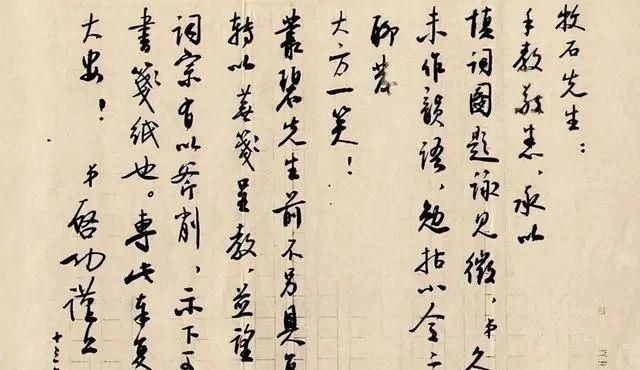 牧石先生：
手教敬悉，承以
填词图题詠见徵，弟久
未作韻语，勉拈小令二
聊发
大方一笑！
叢碧先生前不另具
轉以蕪箋呈教，並望
词宗有以斧削，示下
書箋纸也。專此奉复
大安！
弟 啓功謹上
十三